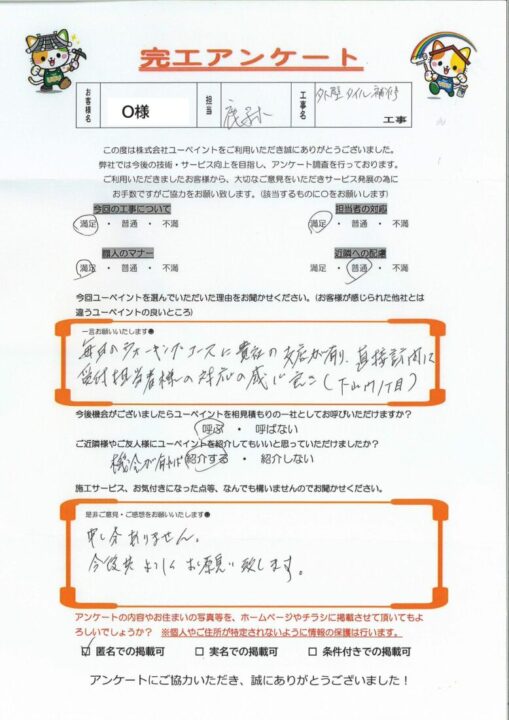 完工アンケート
お客様名
O様
担当
工事名
外壁タイル補修
工事
この度は株式会社ユーペイントをご利用いただき誠にありがとうございました。
弊社では今後の技術・サービス向上を目指し、アンケート調査を行っております。
ご利用いただきましたお客様から、大切なご意見をいただきサービス発展の為に
お手数ですがご協力をお願い致します。(該当するものに○をお願いします)
今回の工事について 担当者の対応
満足 ・ 普通 ・ 不満 満足 ・ 普通 ・ 不満
職人のマナー 近隣への配慮
満足 ・ 普通 ・ 不満 満足 ・ 普通 ・ 不満
今回ユーペイントを選んでいただいた理由をお聞かせください。(お客様が感じられた他社とは
違うユーペイントの良いところ)
一言お願いいたします●
毎日のウォーキングコースに貴社の支店が有り、直接訪問し
受付担当者様の対応の感じ良さ(下山門1丁目)
今後機会がございましたらユーペイントを相見積もりの一社としてお呼びいただけますか?
呼ぶ ・ 呼ばない
ご近隣様やご友人様にユーペイントを紹介してもいいと思っていただけましたか?
機会が有れば 紹介する ・ 紹介しない
施工サービス、お気付きになった点等、なんでも構いませんのでお聞かせください。
是非ご意見・ご感想をお願いいたします●
申し分ありません。
今後共よろしくお願い致します。
アンケートの内容やお住まいの写真等を、ホームページやチラシに掲載させて頂いてもよ
ろしいでしょうか? ※個人やご住所が特定されないように情報の保護は行います。
☑ 匿名での掲載可 □ 実名での掲載可 □ 条件付きでの掲載可
アンケートにご協力いただき、誠にありがとうございました!